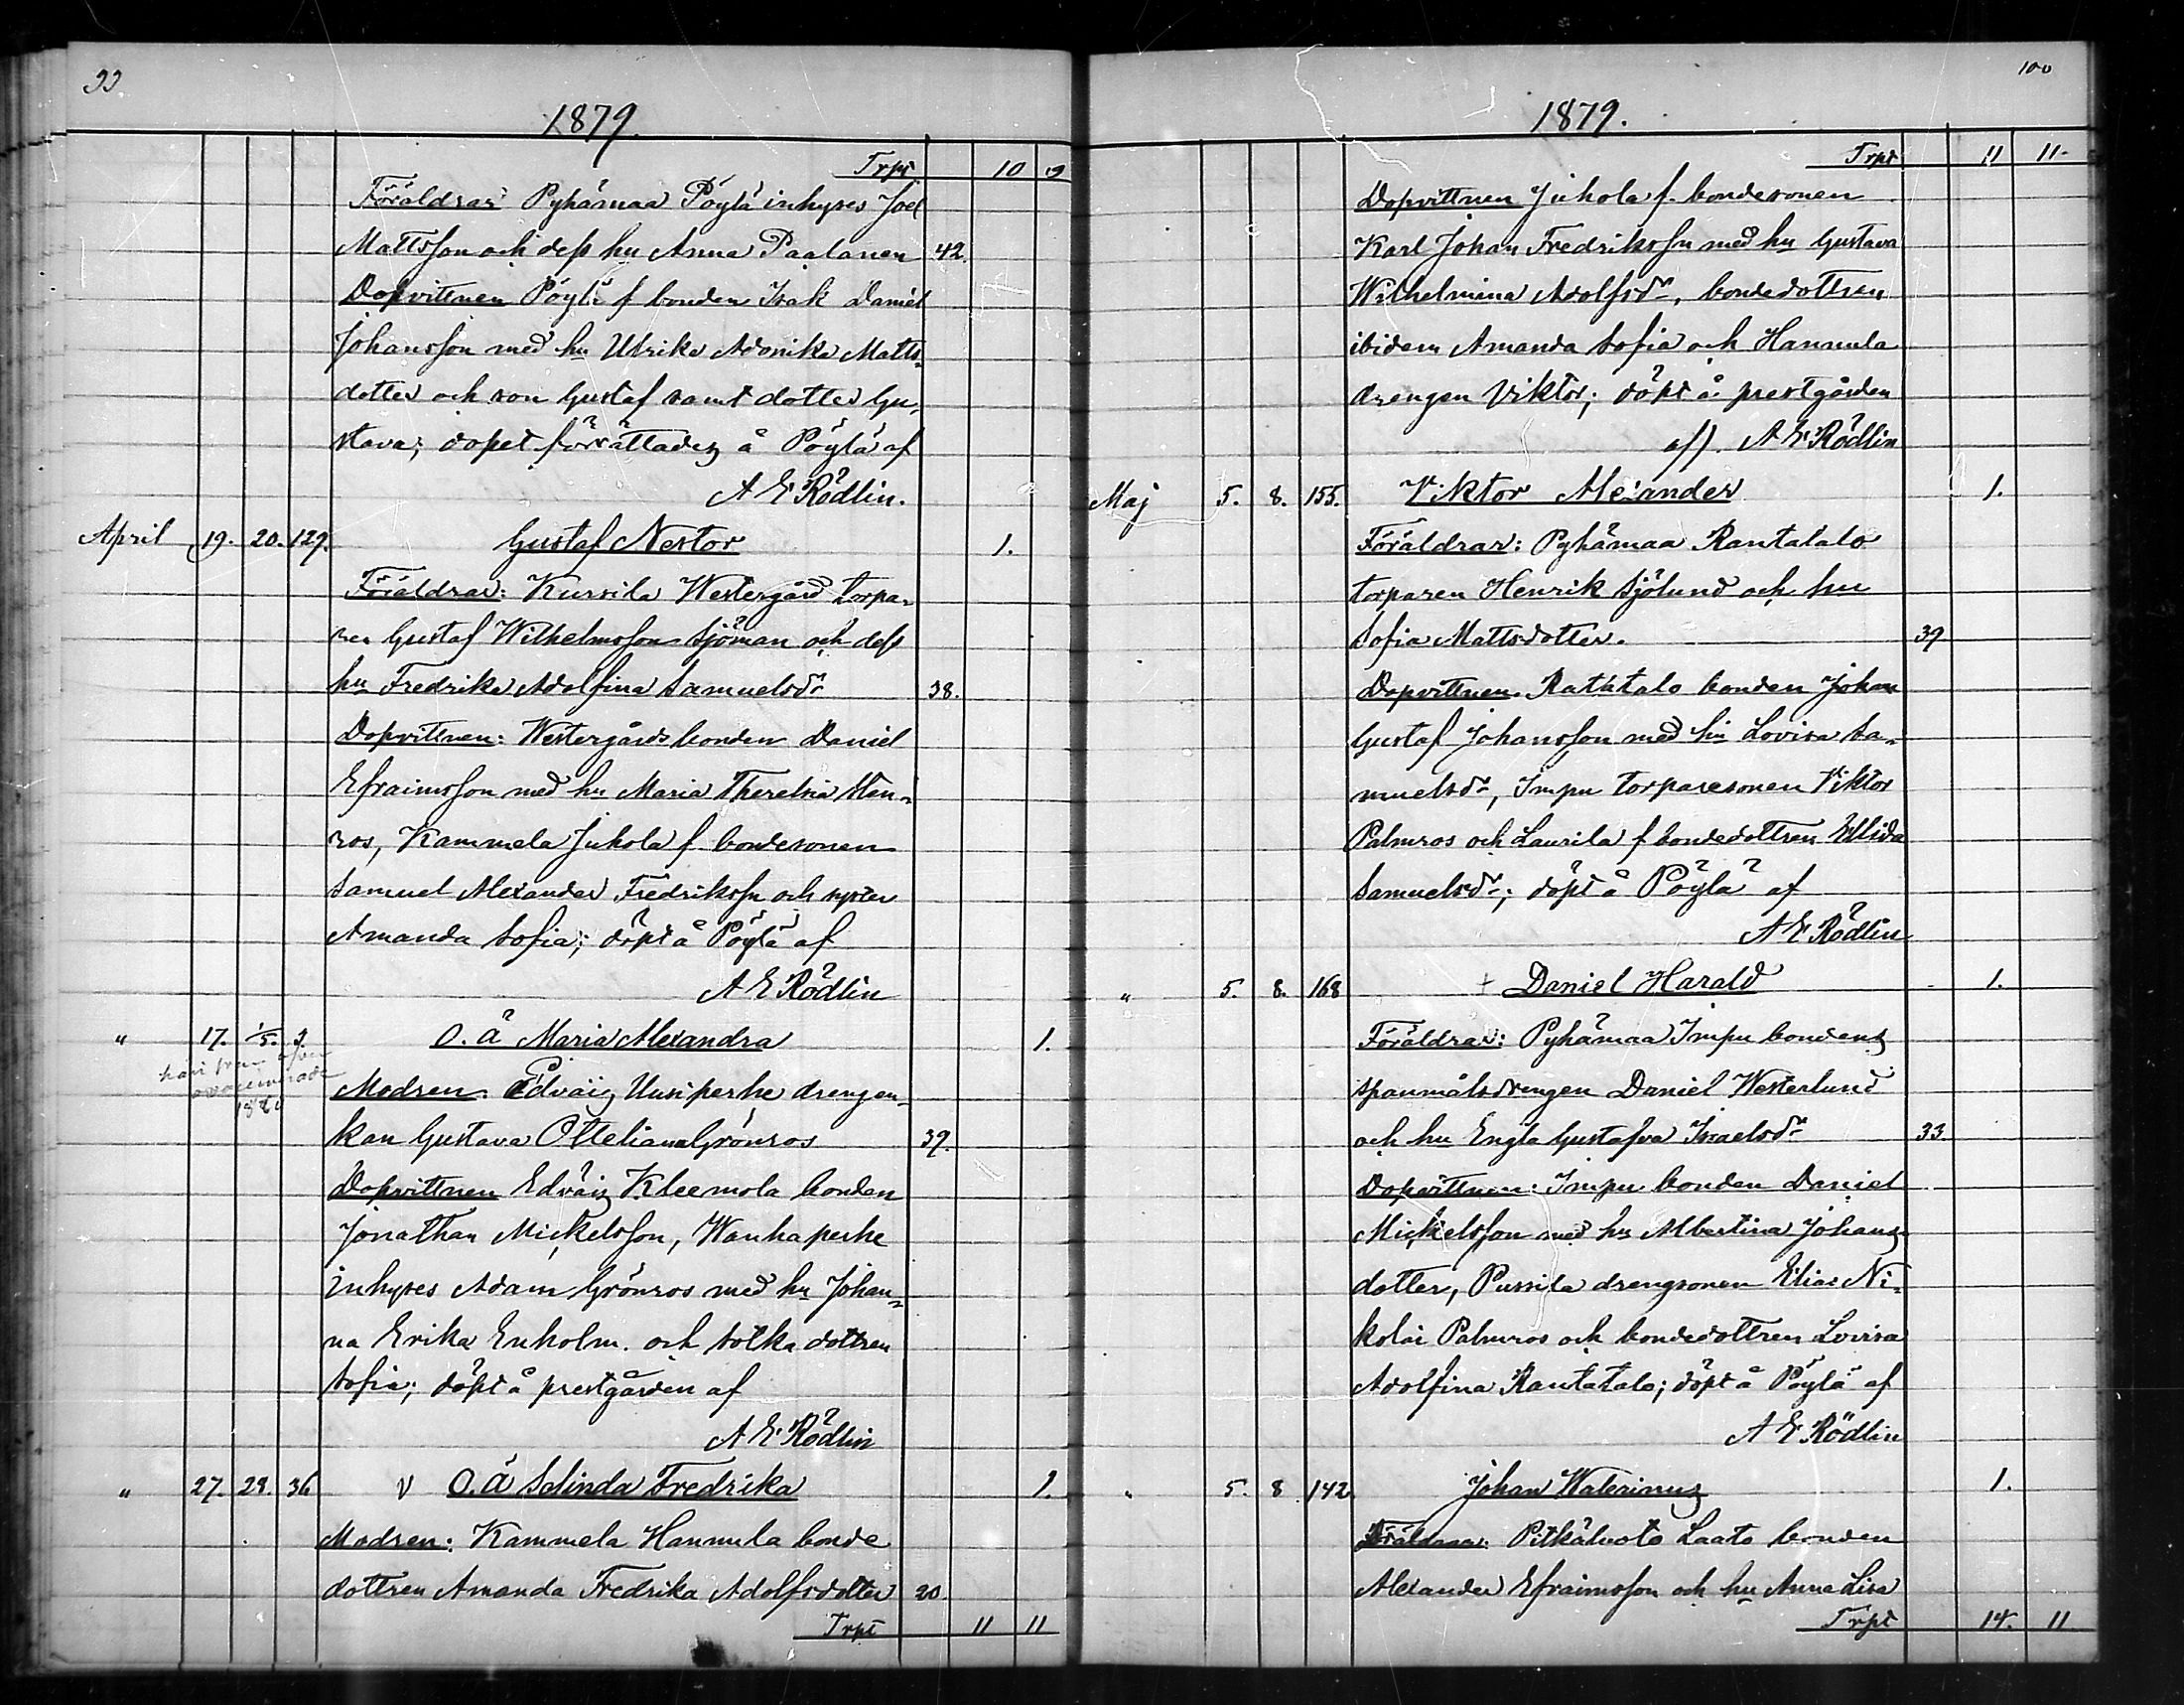 99
1879.
Trpt 10 9
Föräldrar Pyhämaa Pöylä inhyses Joel
Mattsson och dess hu Anna Paalanen 42.
Dopvittnen Pöylä f bonden Isak Daniel
Johansson med hu Ulrika Adonika Matts-
dotter och son Gustaf samt dotter Gu-
stava; dopet förrättades å Pöylä af
A E Rödlin.
April 19. 20. 129. Gustaf Nestor 1.
Föräldrar: Kursila Westergård torpa-
ren Gustaf Wilhelmsson Sjöman och dess
hu Fredrika Adolfina Samuelsdr 38.
Dopvittnen: Westergårds bonden Daniel
Efraimsson med hu Maria Theresia Sten-
ros, Kammela Juhola f. bondesonen
Samuel Alexander Fredriksson och syster
Amanda Sofia; döpt å Pöylä af
A E Rödlin
" 17. 1/5. 3. O. ä Maria Alexandra 1.
1880
Modren: Edväis Uusiperhe drengen-
kan Gustava Otteliana Grönros 39.
Dopvittnen Edväis Kleemola bonden
Jonathan Mickelsson, Wanhaperhe
inhyses Adam Grönros med hu Johan-
na Erika Enholm. och Sotka dottren
Sofia; döpt å prestgården af
A E Rödlin
" 27. 29. 36 v O. ä Selinda Fredrika 1.
Modren: Kammela Hannula bonde
dottren Amanda Fredrika Adolfsdotter 20.
Trpt 11 11
100
1879.
Trpt 11 11
Dopvittnen Juhola f. bondesonen
Karl Johan Fredriksson med hu Gustava
Wilhelmina Adolfsdr, bondedottren
ibidem Amanda Sofia och Hannula
drengen Viktor; döpt å prestgården
af A E Rödlin
Maj 5. 8. 155. Viktor Alexander 1.
Föräldrar: Pyhämaa Rantatalo
torparen Henrik Sjölund och hu
Sofia Mattsdotter. 39
Dopvittnen. Rattalo bonden Johan
Gustaf Johansson med hu Lovisa Sa-
muelsdr, Impu torparesonen Viktor
Palmros och Laurila f bondedottren Ellida
Samuelsdr; döpt å Pöylä af
A E Rödlin
" 5. 8. 168 + Daniel Harald 1.
Föräldrar: Pyhämaa Impu bondens
spanmålsdrengen Daniel Westerlund
och hu Engla Gustafva Isaelsdr 33.
Dopvittnen: Impu bonden Daniel
Mickelsson med hu Albertina Johans-
dotter, Pussila drengsonen Elias Ni-
kolai Palmros och bondedottren Lovisa
Adolfina Rantatalo; döpt å Pöylä af
A E Rödlin
" 5. 8. 142. Johan Walerinus 1.
Föräldrar: Pitkäluoto Laato bonden
Alexander Efraimsson och hu Anna Lisa
Trpt 14. 11